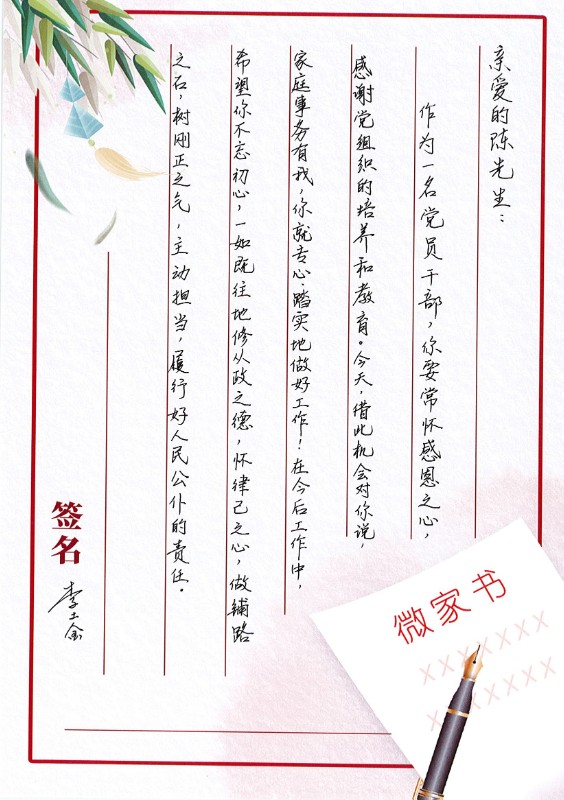 亲爱的陈先生：
作为一名党员干部，你要常怀感恩之心，
感谢党组织的培养和教育。今天，借此机会对你说，
家庭事务有我，你就专心踏实地做好工作！在今后工作中，
希望你不忘初心，一如既往地修从政之德，怀律己之心，做铺路
之石，树刚正之气，主动担当，履行好人民公仆的责任。
签名
李工金
微家书
XXXXXXX
XXXXXXX